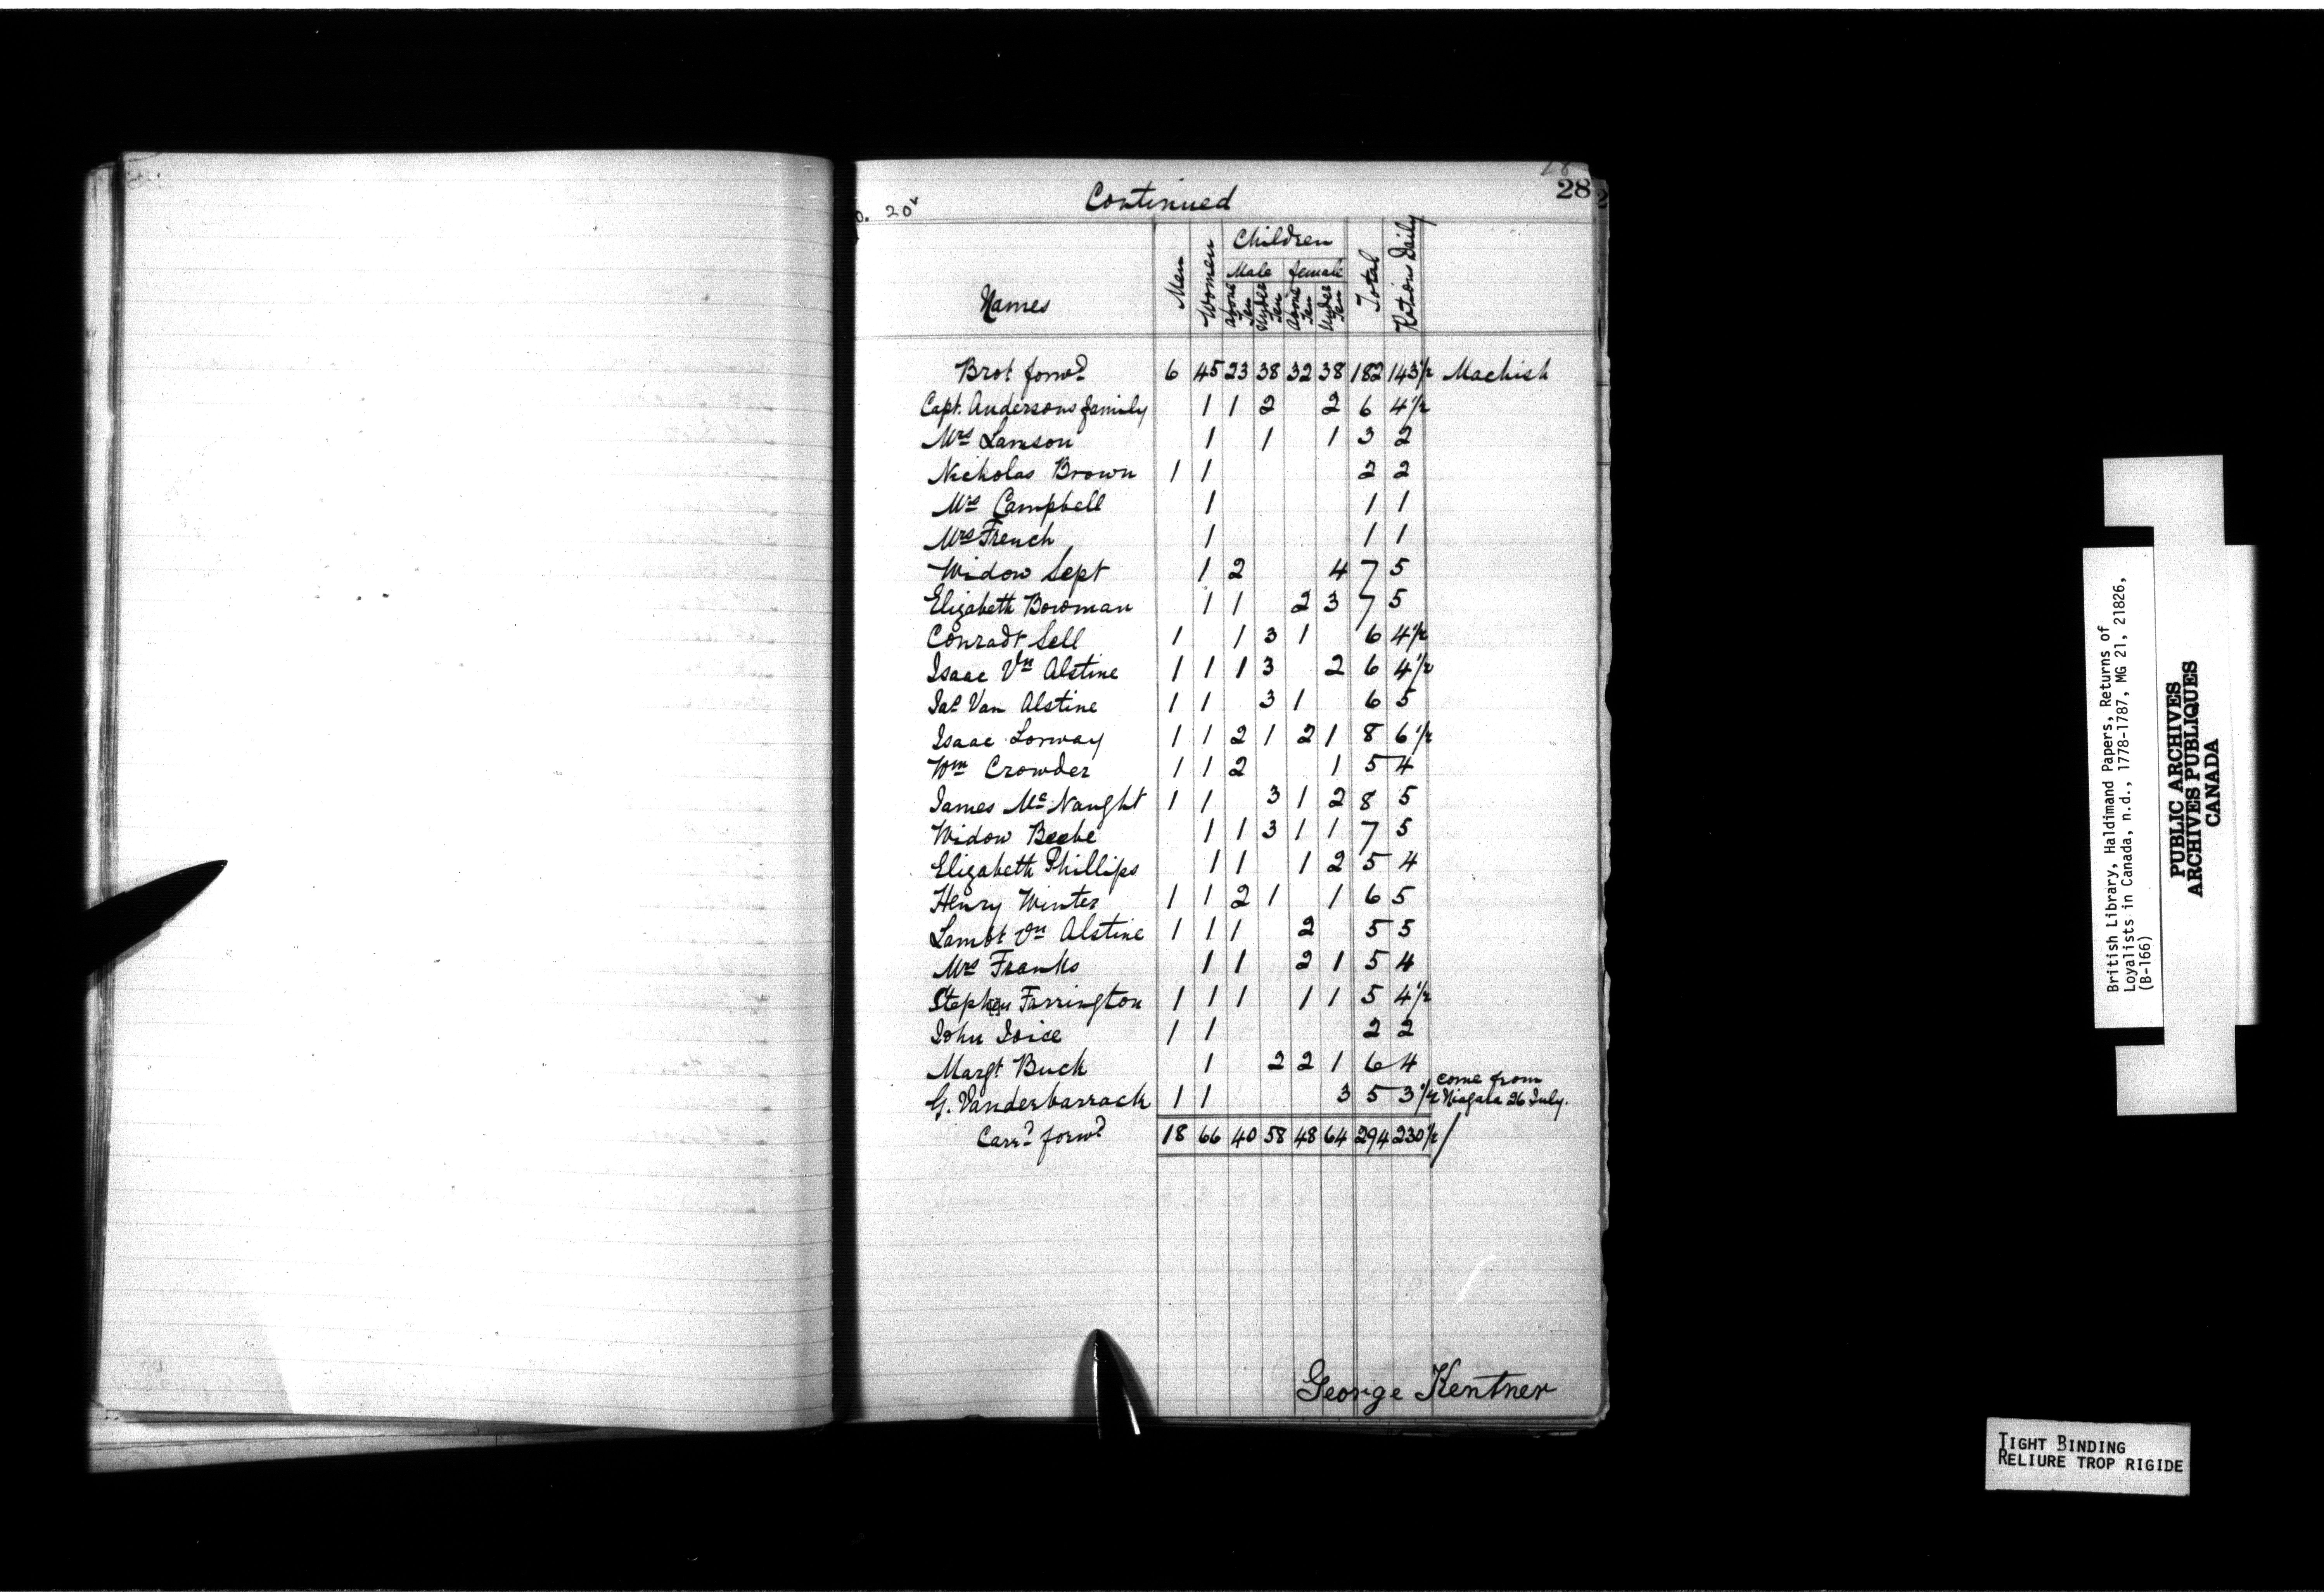 28
28
p. 20v
Continued
Names Men Women Children Total Rations Daily
Male female
Above Ten Under Ten Above Ten Under Ten
Brot forwd 6 45 23 38 32 38 182 143½ Machish
Capt. Andersons family 1 1 2 2 6 4½
Mrs Lamson 1 1 1 3 2
Nickolas Brown 1 1 2 2
Mrs Campbell 1 1 1
Mrs French 1 1 1
Widow Sept 1 2 4 7 5
Elizabeth Bowman 1 1 2 3 7 5
Conradt Sell 1 1 3 1 6 4½
Isaac Vn Alstine 1 1 1 3 2 6 4½
Jas Van Alstine 1 1 3 1 6 5
Isaac Lorway 1 1 2 1 2 1 8 6½
Wm Crowder 1 1 2 1 5 4
James Mc Naught 1 1 3 1 2 8 5
Widow Beebe 1 1 3 1 1 7 5
Elizabeth Phillips 1 1 1 2 5 4
Henry Winter 1 1 2 1 1 6 5
Lambt Vn Alstine 1 1 1 2 5 5
Mrs Franks 1 1 2 1 5 4
Stephen Farrington 1 1 1 1 1 5 4½
John Joice 1 1 2 2
Margt Buck 1 2 2 1 6 4
G. Vanderbarrack 1 1 3 5 3½ come from
Niagara 26 July.
Carrd forwd 18 66 40 58 48 64 294 230½
George Kentner
British Library, Haldimand Papers, Returns of
Loyalists in Canada, n.d., 1778-1787, MG 21, 21826,
(B-166)
PUBLIC ARCHIVES
ARCHIVES PUBLIQUES
CANADA
TIGHT BINDING
RELIURE TROP RIGIDE